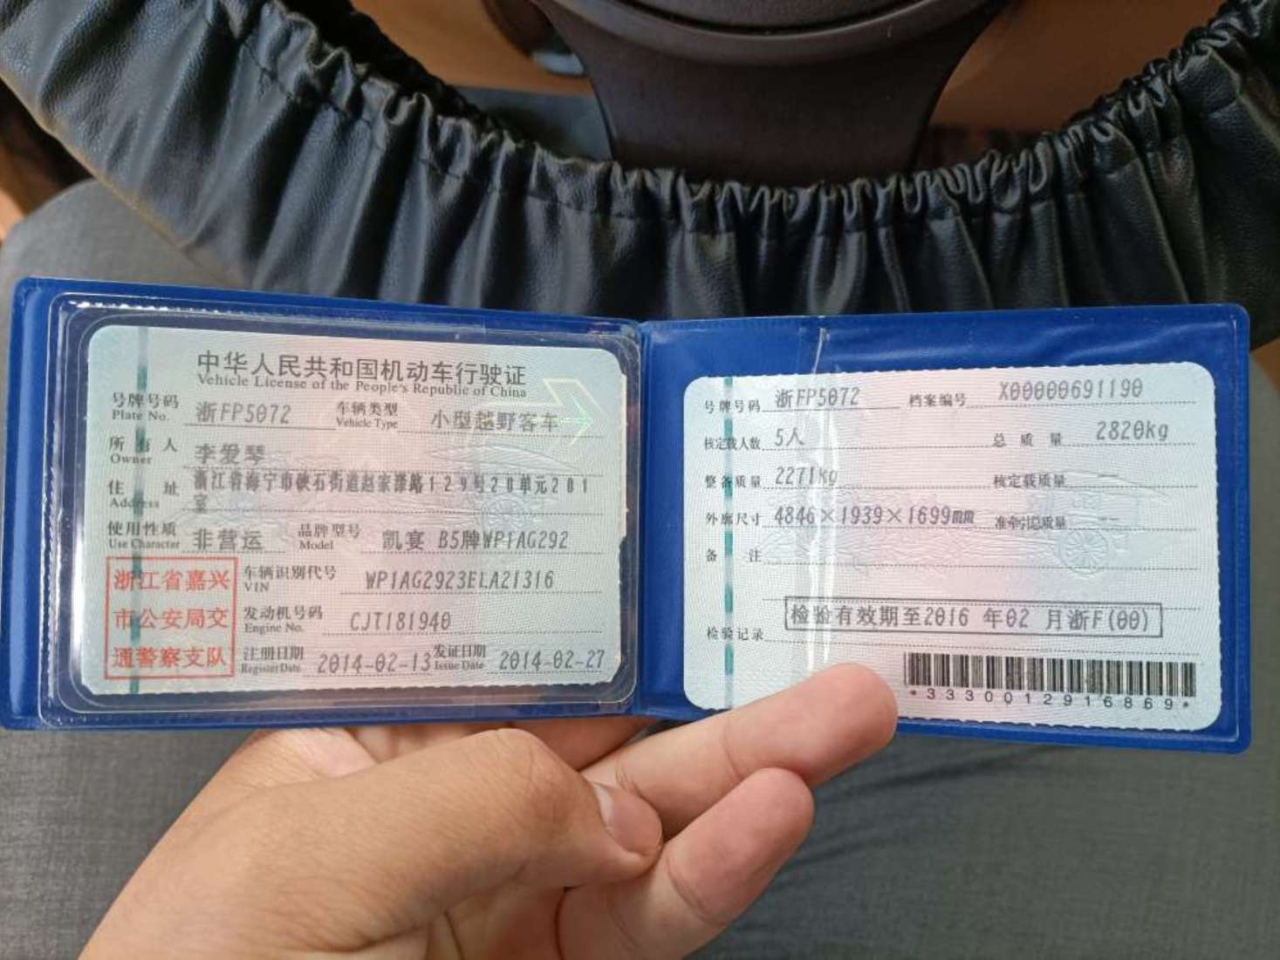 中华人民共和国机动车行驶证
Vehicle License of the People's Republic of China
号牌号码 浙FP5072 车辆类型 小型越野客车
Plate No. Vehicle Type
所有人 李爱琴
Owner
住址 浙江省海宁市硖石街道赵家漾路129号20单元201
室
Address
使用性质 非营运 品牌型号 凯宴 B5牌WP1AG292
Use Character Model
浙江省嘉兴
市公安局交
通警察支队
车辆识别代号 WP1AG2923ELA21316
VIN
发动机号码 CJT181940
Engine No.
注册日期 2014-02-13 发证日期 2014-02-27
Register Date Issue Date
号牌号码 浙FP5072 档案编号 X00000691190
核定载人数 5人 总质量 2820kg
整备质量 2271kg 核定载质量 --
外廓尺寸 4846×1939×1699mm 准牵引总质量 --
备注
检验记录 检验有效期至2016 年02 月浙F(00)
*3330012916869*